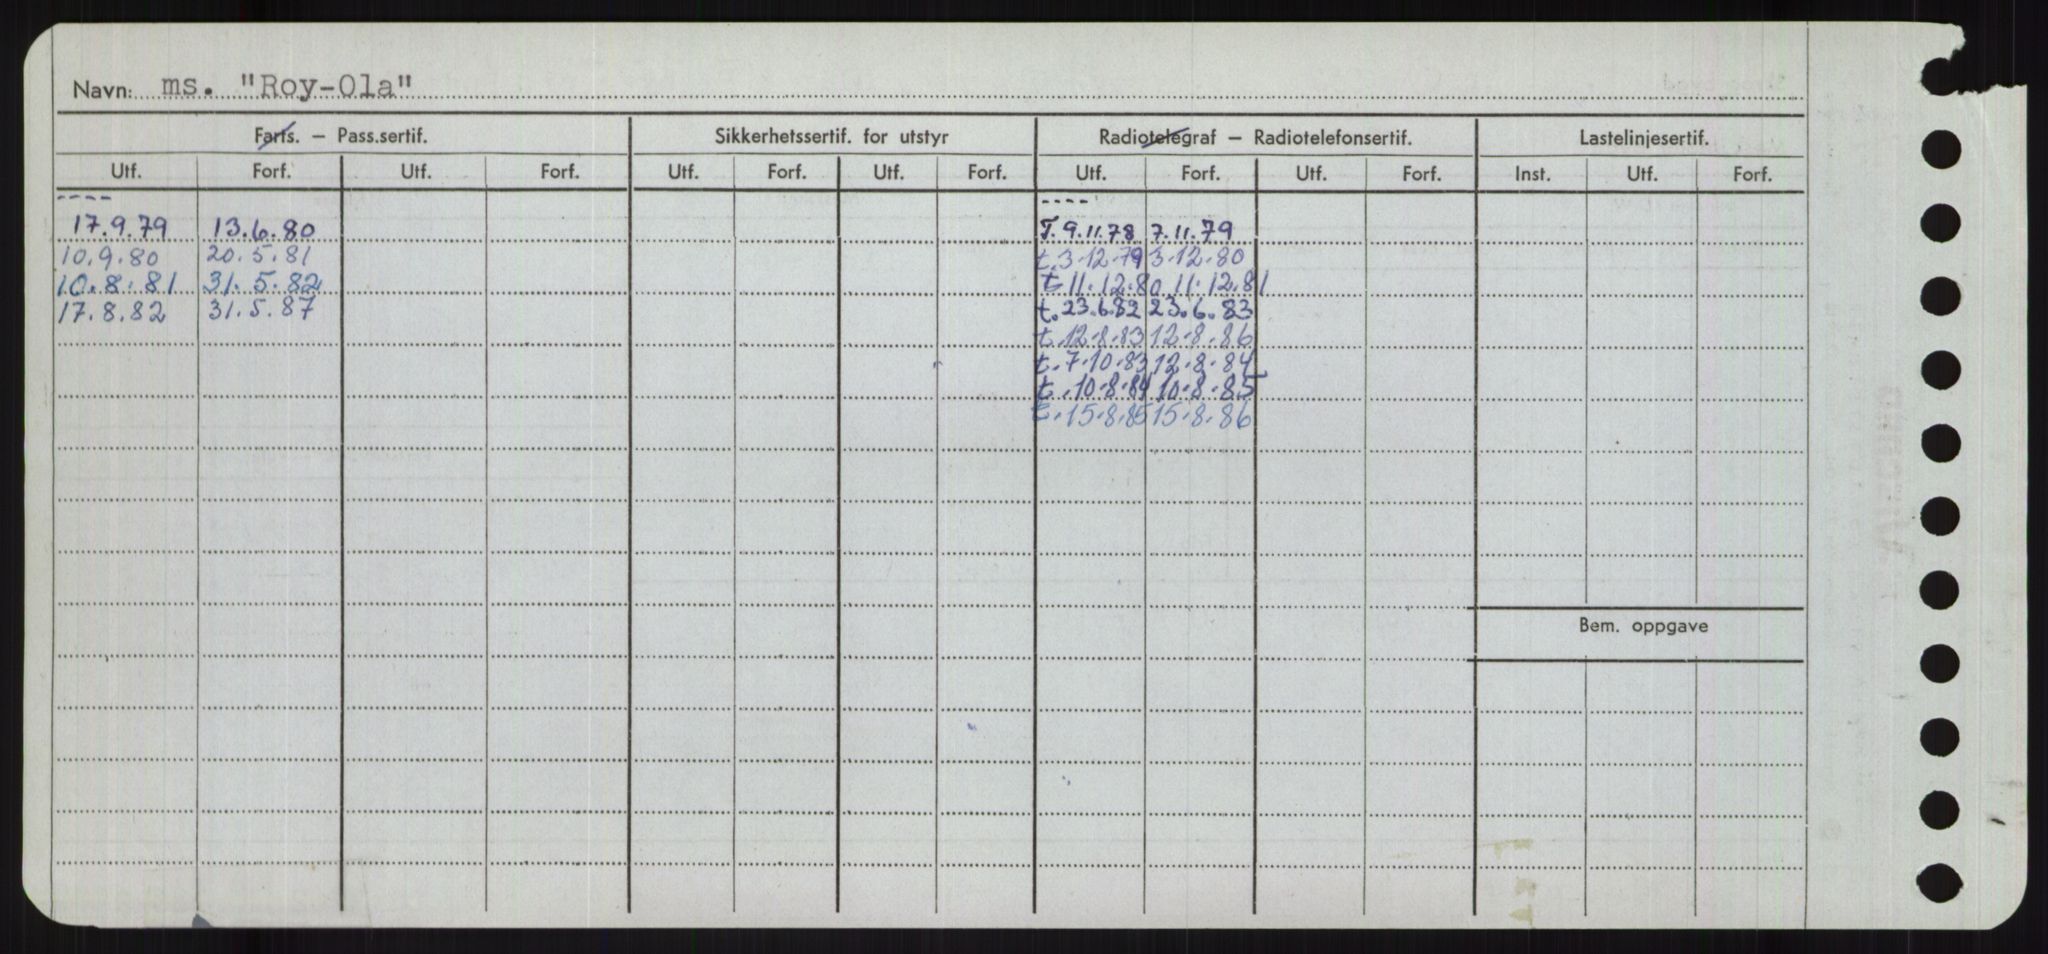 Navn: ms. "Roy-Ola"
Farts. – Pass.sertif. Sikkerhetssertif. for utstyr Radiotelegraf – Radiotelefonsertif. Lastelinjesertif.
Utf. Forf. Utf. Forf. Utf. Forf. Utf. Forf. Utf. Forf. Utf. Forf. Inst. Utf. Forf.
---- ----
17.9.79 13.6.80 T. 9.11.78 7.11.79
10.9.80 20.5.81 t. 3.12.79 3.12.80
10.8.81 31.5.82 t. 11.12.80 11.12.81
17.8.82 31.5.87 t. 23.6.82 23.6.83
t. 12.8.83 12.8.86
t. 7.10.83 12.8.84
t. 10.8.84 10.8.85
t. 15.8.85 15.8.86
Bem. oppgave